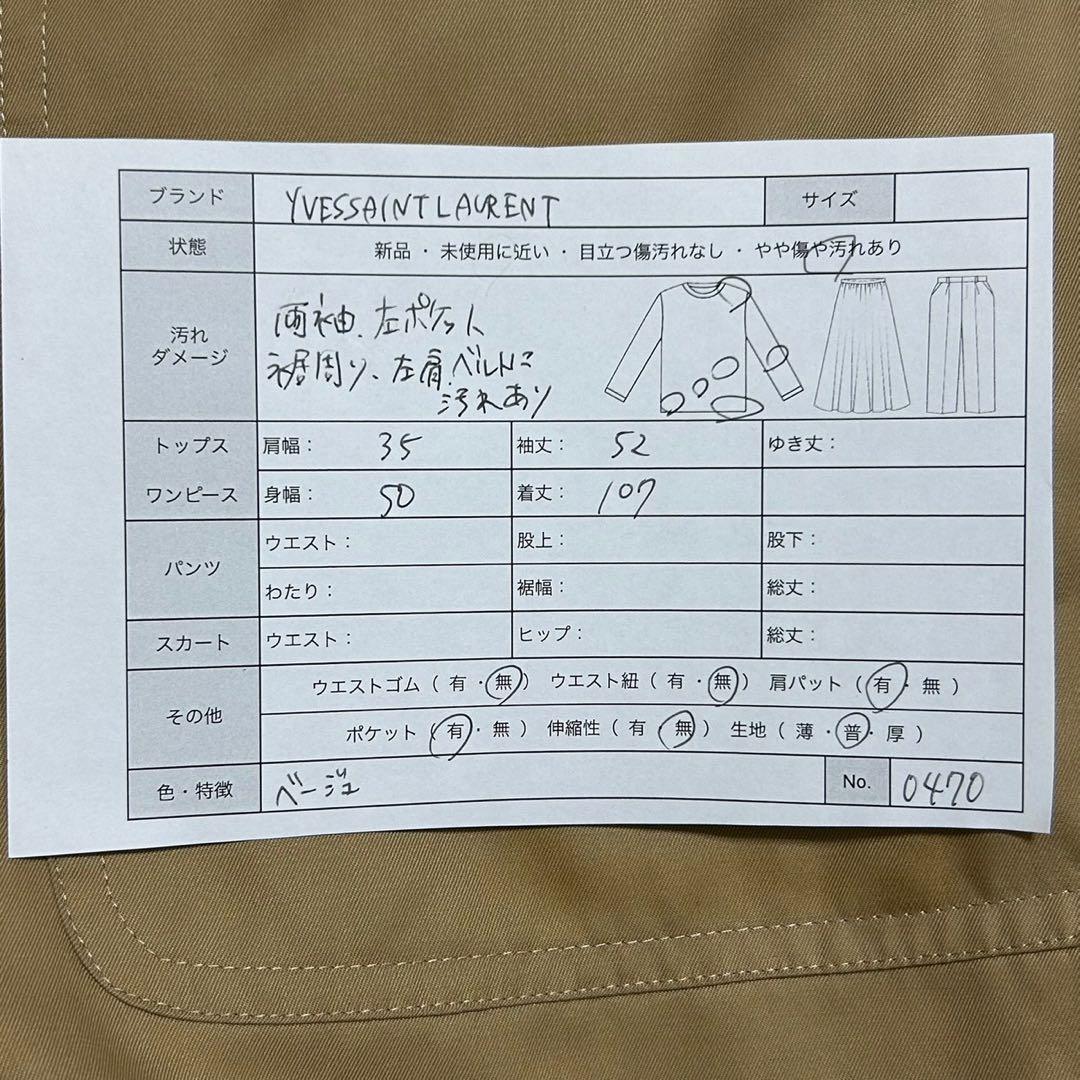 ブランド YVESSAINTLAURENT サイズ
状態 新品 ・ 未使用に近い ・ 目立つ傷汚れなし ・ やや傷や汚れあり
汚れ
ダメージ
両袖、左ポケット
裾周り、左肩、ベルトに
汚れあり
トップス 肩幅： 35 袖丈： 52 ゆき丈：
ワンピース 身幅： 50 着丈： 107
パンツ
ウエスト： 股上： 股下：
わたり： 裾幅： 総丈：
スカート ウエスト： ヒップ： 総丈：
その他
ウエストゴム（ 有 ・ 無 ） ウエスト紐（ 有 ・ 無 ） 肩パット（ 有 ・ 無 ）
ポケット（ 有 ・ 無 ） 伸縮性（ 有 ・ 無 ） 生地（ 薄 ・ 普 ・ 厚 ）
色・特徴 ベージュ No. 0470